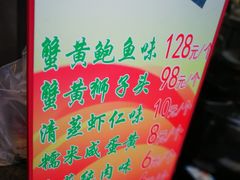 蟹黄鲍鱼味 128元/个
蟹黄狮子头 98元/个
清蒸虾仁味 10元/个
糯米咸蛋黄 8元/个
肉味 6元/个